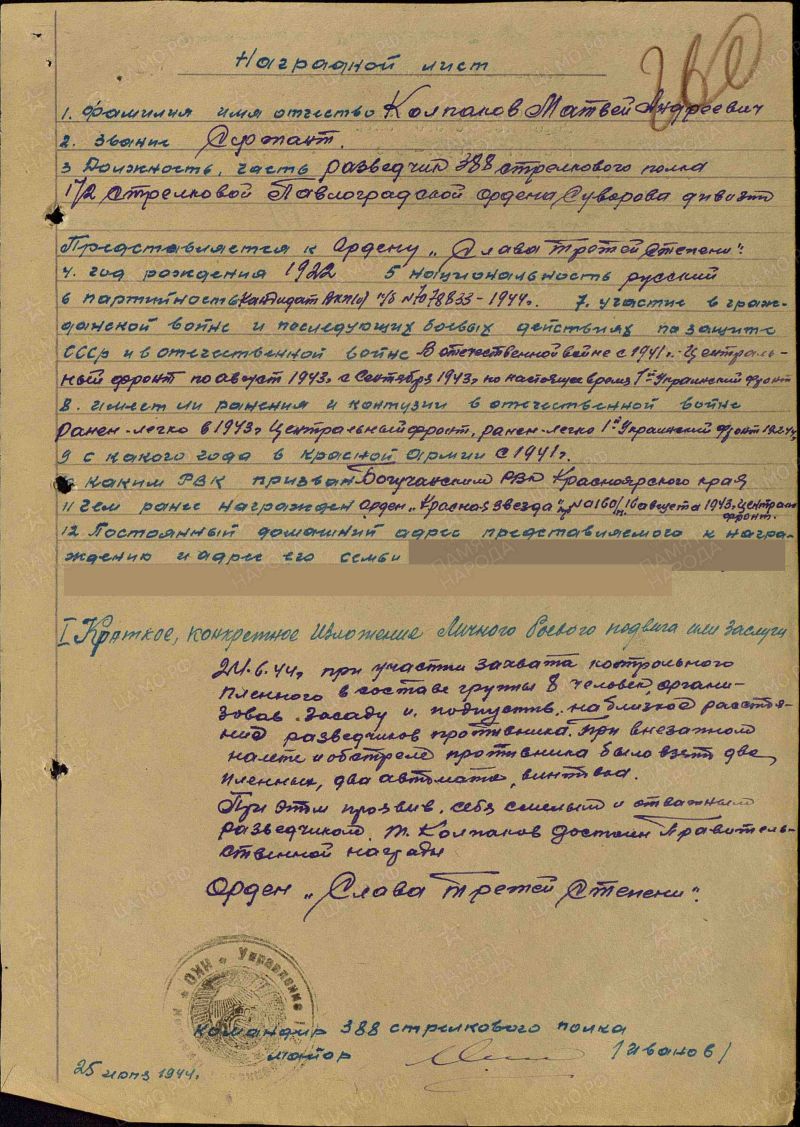 260
Наградной лист
1. Фамилия имя отчество Колпаков Матвей Андреевич
2. Звание Сержант.
3 Должность, часть разведчик 388 стрелкового полка
172 стрелковой Павлоградской ордена Суворова дивизии
Представляется к Ордену „Слава третей Степени".
4. год рождения 1922 5 национальность русский
6 партийность Кандидат ВКП(б) п/б №7078833-1944г. 7. участие в граж-
данской войне и последующих боевых действиях по защите
СССР и в отечественной войне В отечественной войне с 1941г. Централь-
ный фронт по август 1943г с Сентября 1943г по настоящее время 1й Украинский фронт
8. имеет ли ранения и контузии в отечественной войне
ранен-легко в 1943г Центральный фронт, ранен-легко 1й Украинский фронт
9 с какого года в Красной Армии С 1941г.
каким РВК призван Богучанским РВК Красноярского края
11 Чем ранее награжден Орден „Красная звезда" пр. №0160/н 16 августа 1943г. Централ
фронт.
12 Постоянный домашний адрес представляемого к награ-
ждению и адрес его семьи
I Краткое, конкретное изложение личного боевого подвига или заслуги
24.6.44г при участии захвата контрольного
пленного в составе группы 8 человек, органи-
зовав засаду и подпустив на близкое расстоя-
ние разведчиков противника. При внезапном
налете и обстреле противника было взято два
пленных, два автомата, винтовка.
При этом проявив себя смелым и отважным
разведчиком. т. Колпаков достоин Правитель-
ственной награды
Орден „Слава третей Степени".
Управление
Командир 388 стрелкового полка
майор /Иванов/
25 июня 1944г.